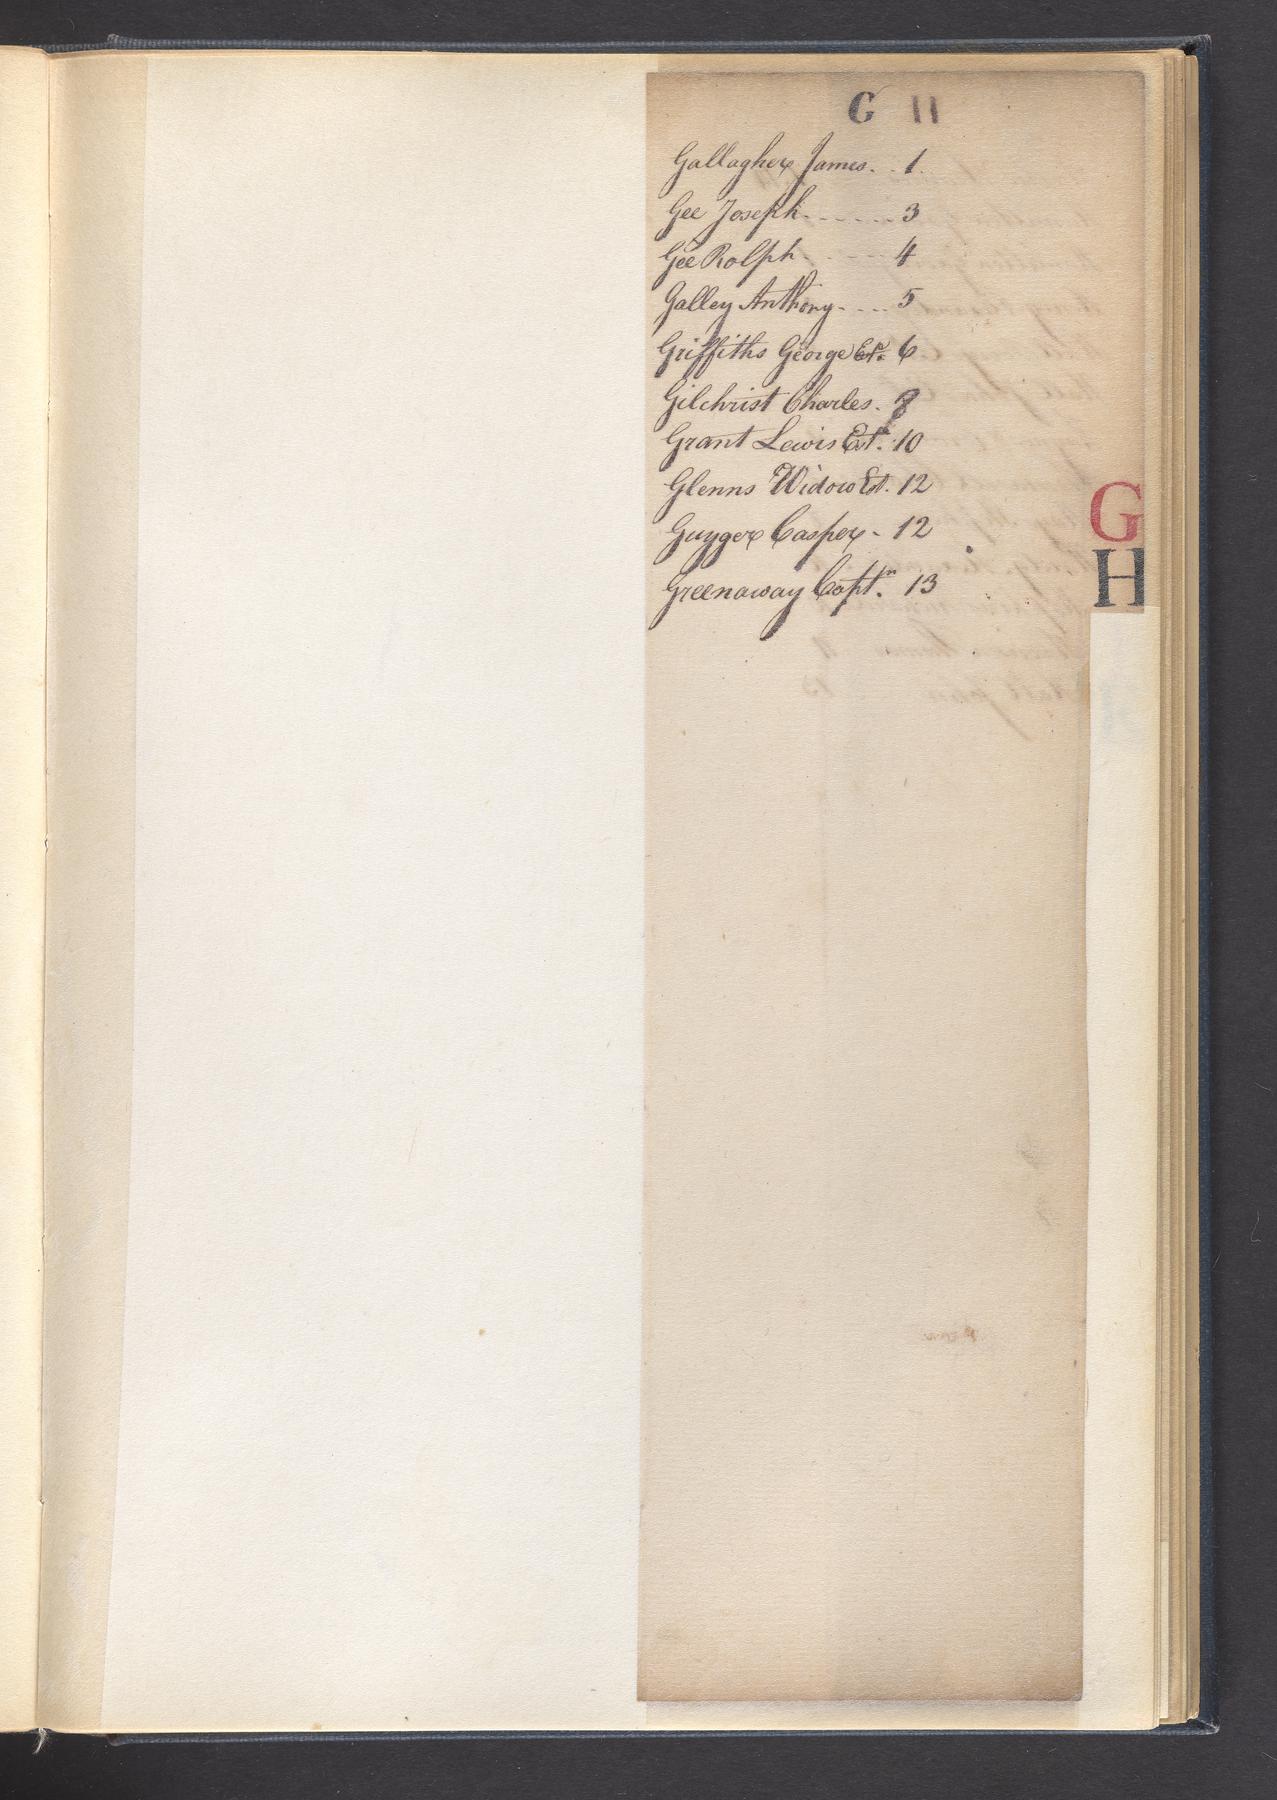 G
Gallagher James. . 1.
Gee Joseph. - - - - - 3
Gee Rolph. - - - - 4
Galley Anthony. - . . . 5
Griffiths George Est. 6
Gilchrist Charles. 8
Grant Lewis Est. 10
Glenns Widow Est. 12
Guyger Casper - 12
Greenaway Captn. 13
G
H